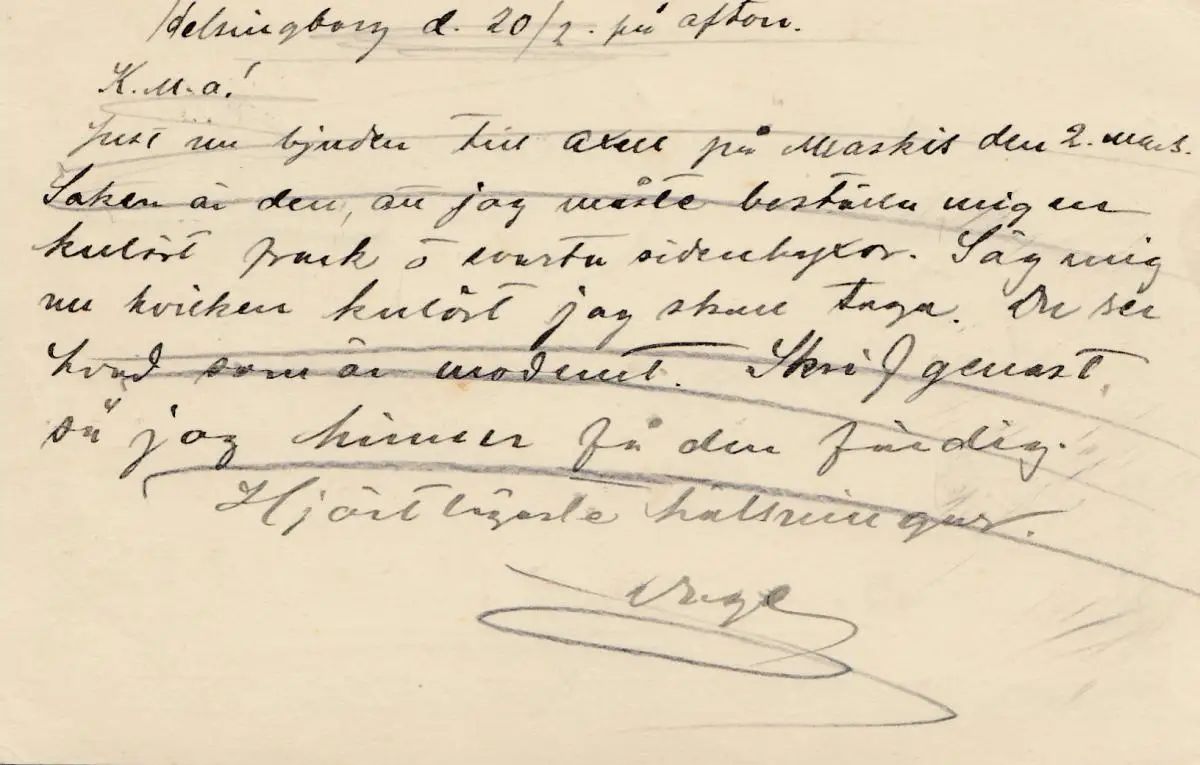 Helsingborg d. 20/2. på afton.
K. M. a!
Just nu bjuden till Axel på Maskis den 2. mars.
Saken är den, att jag måste beställa mig en
kulört frack ö svarta sidenbyxor. Säg mig
nu hvilken kulört jag skall taga. Du ser
hvad som är modernt. Skrif genast
så jag hinner få den färdig.
Hjärtligaste hälsningar.